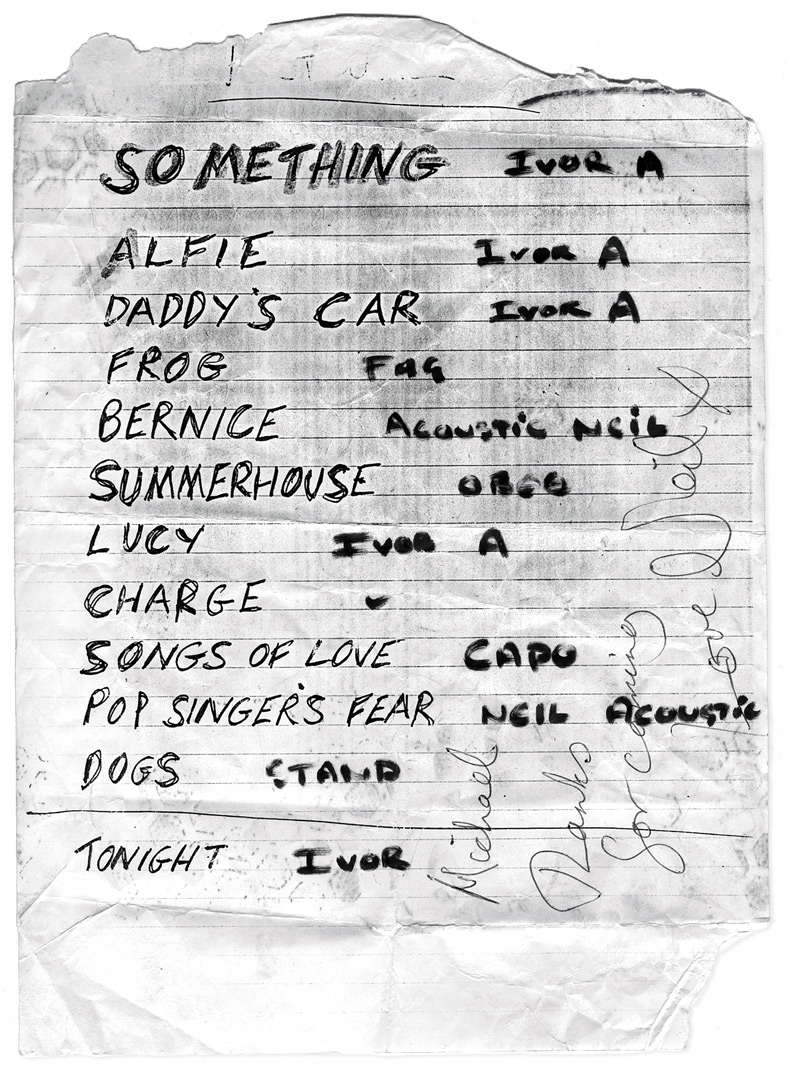 SOMETHING IVOR A
ALFIE IVOR A
DADDY'S CAR IVOR A
FROG FAG
BERNICE ACOUSTIC NEIL
SUMMERHOUSE OBEO
LUCY IVOR A
CHARGE
SONGS OF LOVE CAPO
POP SINGER'S FEAR NEIL ACOUSTIC
DOGS STAND
TONIGHT IVOR
Michael
Thanks
for coming
Love
Neil x